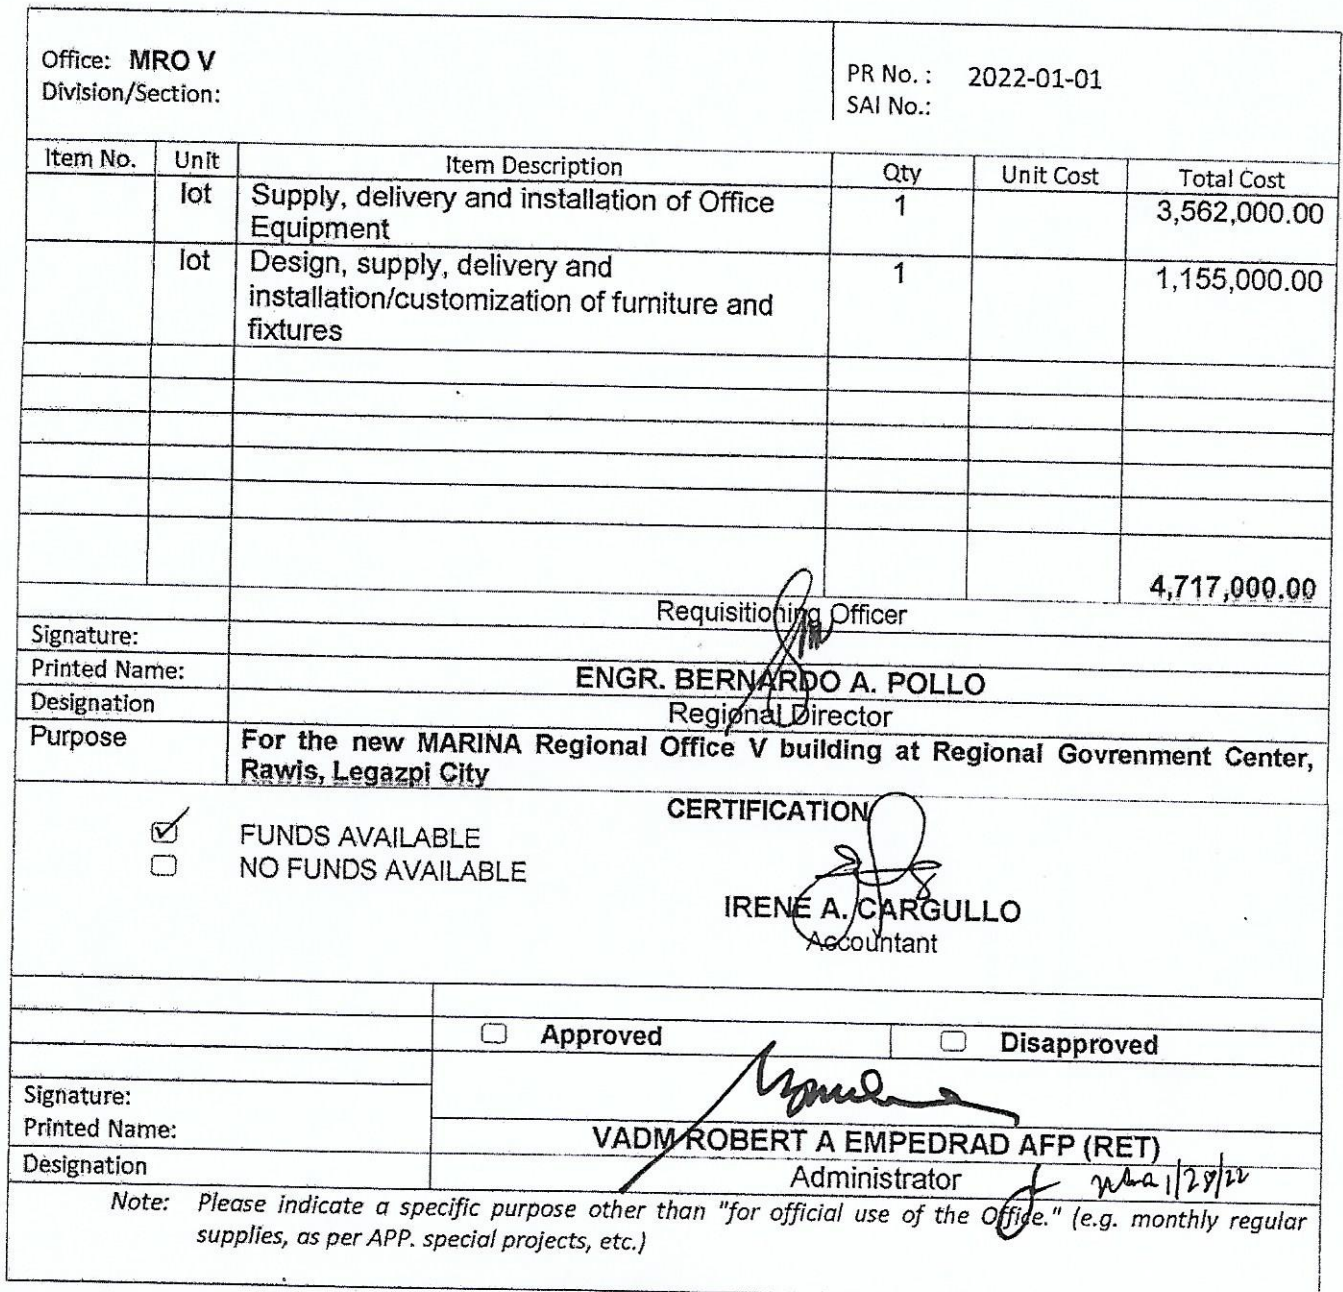 Office: MRO V
Division/Section:
PR No. : 2022-01-01
SAI No.:
Item No. Unit Item Description Qty Unit Cost Total Cost
lot Supply, delivery and installation of Office 1 3,562,000.00
Equipment
lot Design, supply, delivery and 1 1,155,000.00
installation/customization of furniture and
fixtures
4,717,000.00
Requisitioning Officer
Signature:
Printed Name: ENGR. BERNARDO A. POLLO
Designation Regional Director
Purpose For the new MARINA Regional Office V building at Regional Govrenment Center,
Rawis, Legazpi City
CERTIFICATION
FUNDS AVAILABLE
NO FUNDS AVAILABLE
IRENE A. CARGULLO
Accountant
Approved Disapproved
Signature:
Printed Name: VADM ROBERT A EMPEDRAD AFP (RET)
Designation Administrator 1/28/22
Note: Please indicate a specific purpose other than "for official use of the Office." (e.g. monthly regular
supplies, as per APP. special projects, etc.)